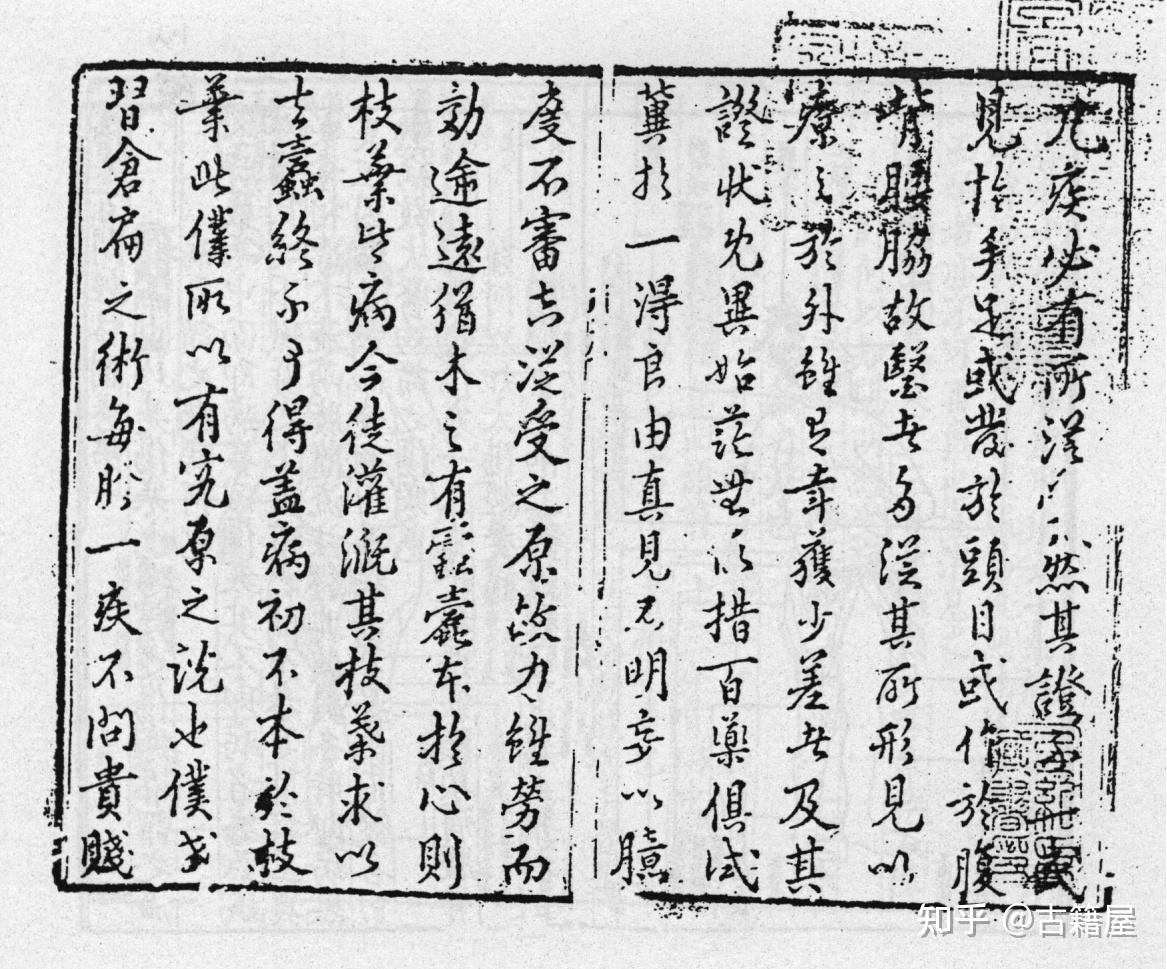 凡疾必有所從□□然其證不□或
見於手足或發於頭目或作於腹
背腰脇故醫者多從其所形見以
療之於外雖有幸獲少差者及其
證狀允異始茫無所措百藥俱試
冀於一得良由真見不明妄以臆
度不審其從受之原筋力雖勞而
効逾遠猶木之有蠹蠹本於心則
枝葉皆病今徒灌溉其枝葉求以
去蠹終不可得蓋病初不本於枝
葉此僕所以有究原之說也僕
習倉扁之術每於一疾不問貴賤
知乎 @古籍屋